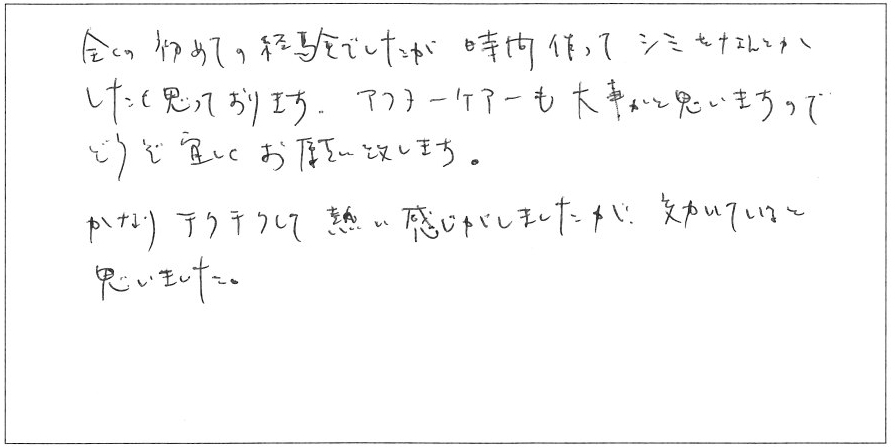 全くの初めての経験でしたが 時間作って シミをなんとか
したく思っております。アフターケアーも大事かと思いますので
どうぞ宜しくお願い致します。
かなりチクチクして 熱い感じがしましたが、効いていると
思いました。